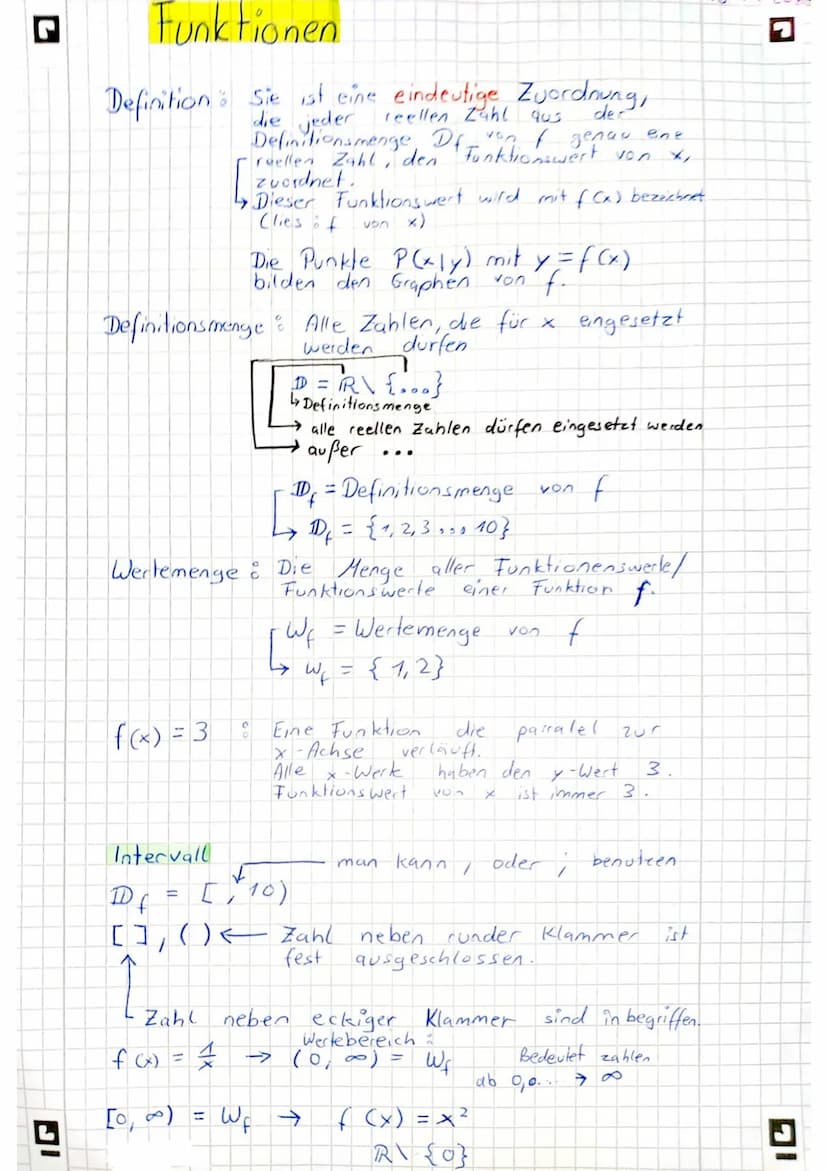 Funktionen
Definition: Sie ist eine eindeutige Zuordnung,
die jeder reellen Zahl aus der
Definitionsmenge Df von f genau ene
reellen Zahl, den Funktionswert von x,
zuordnet.
↳ Dieser Funktionswert wird mit f(x) bezeichnet
(lies: f von x)
Die Punkte P(x|y) mit y = f(x)
bilden den Graphen von f.
Definitionsmenge: Alle Zahlen, die für x eingesetzt
werden dürfen
𝔻 = ℝ\ {...}
↳ Definitionsmenge
→ alle reellen Zahlen dürfen eingesetzt werden
→ außer ...
𝔻f = Definitionsmenge von f
↳ 𝔻f = {1, 2, 3 ... 10}
Wertemenge: Die Menge aller Funktionenswerte/
Funktionswerte einer Funktion f.
Wf = Wertemenge von f
↳ Wf = {1, 2}
f(x) = 3 : Eine Funktion die parralel zur
x-Achse verläuft.
Alle x-Werk haben den y-Wert 3.
Funktionswert von x ist immer 3.
Intervall
man kann , oder ; benutzen
𝔻f = [ , 10)
[ ] , ( ) ← Zahl neben runder Klammer ist
fest ausgeschlossen.
Zahl neben eckiger Klammer sind inbegriffen.
Wertebereich:
f(x) = 1/x → (0, ∞) = Wf Bedeutet zahlen
ab 0,0... → ∞
[0, ∞) = Wf → f(x) = x²
ℝ\ {0}